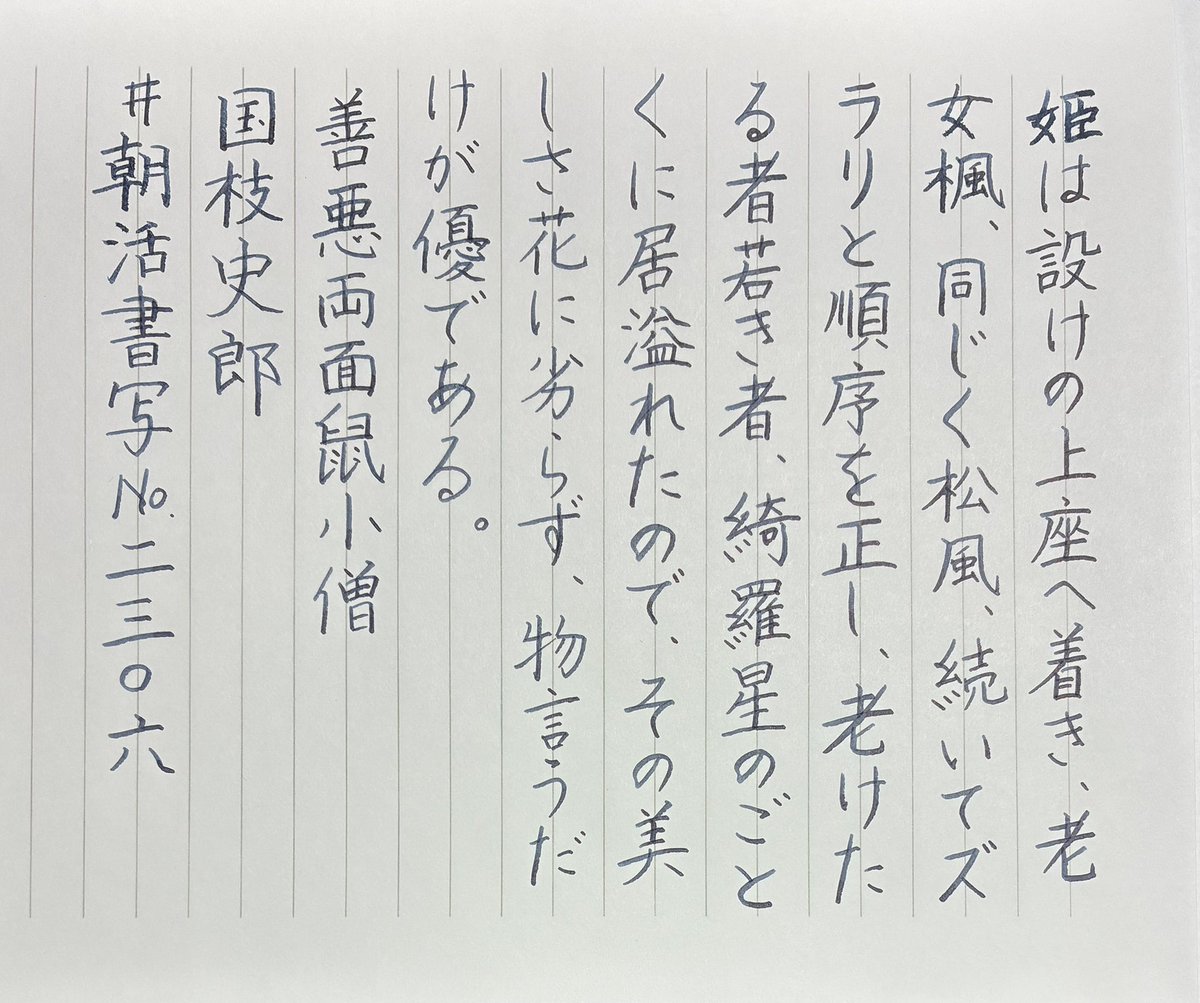 姫は設けの上座へ着き、老
女楓、同じく松風、続いてズ
ラリと順序を正し、老けた
る者若き者、綺羅星のごと
くに居溢れたので、その美
しさ花に劣らず、物言うだ
けが優である。
善悪両面鼠小僧
国枝史郎
#朝活書写No.二三〇六